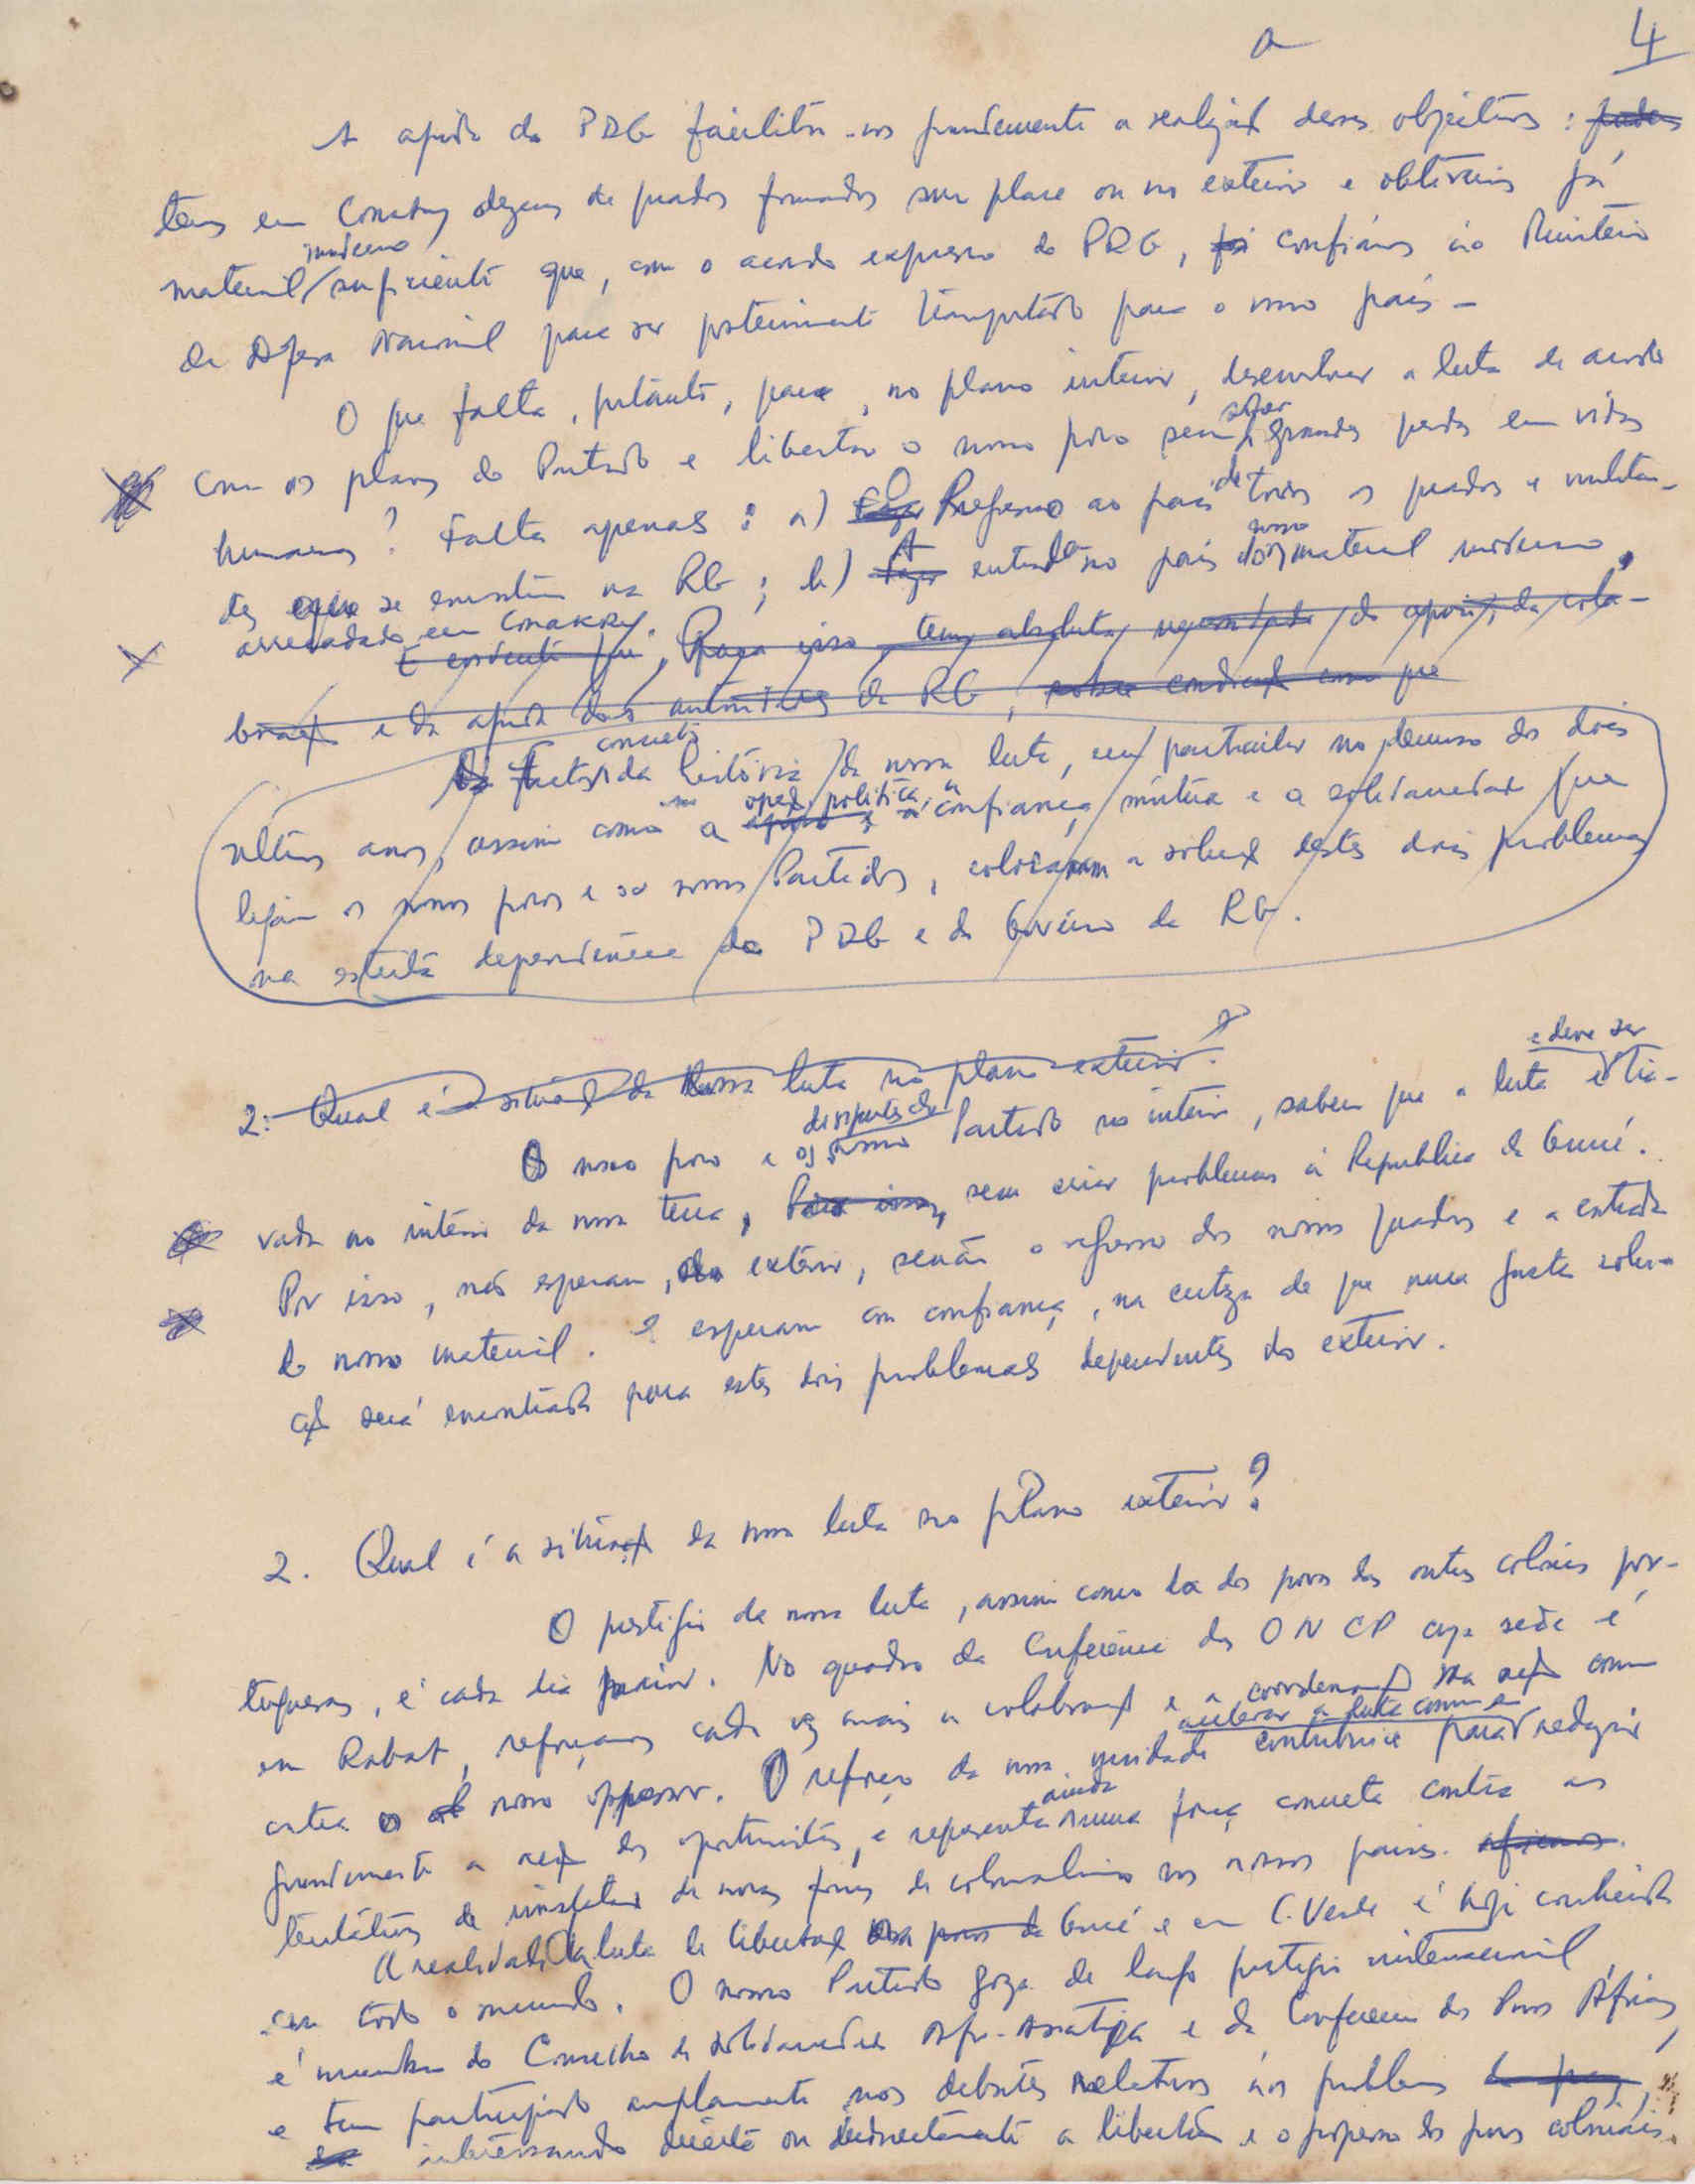 a 4
A ajuda do PDG facilitou-nos grandemente a realização desses objectivos :
temos em Conakry dezenas de quadros formados sur place ou no exterior e obtivemos já
material moderno suficiente que, com o acordo expresso do PDG, confiámos ao Ministério
da Defesa Nacional para ser posteriormente transportado para o nosso país.
O que falta, portanto, para, no plano interior, desenvolver a luta de acordo
com os planos do Partido e libertar o nosso povo sem sofrer grandes perdas em vidas
humanas? Falta apenas : a) Regresso ao país de todos os quadros e militan-
tes que se encontram na RG ; b) A entrada no país do nosso material moderno,
arrecadado em Conakry.
É evidente que, Para isso temos absoluta necessidade do apoio, da cola-
boração e da ajuda das autoridades da RG, com que
Factos concretos da história da nossa luta, em particular no decurso dos dois
últimos anos, assim como a opção política, a confiança mútua e a solidariedade que
ligam os nossos povos e os nossos Partidos, colocaram a solução destes dois problemas
na estreita dependência do PDG e do Govêrno da RG.
2. Qual é a situação da nossa luta no plano exterior?
O nosso povo e os responsáveis do nosso Partido no interior, sabem que a luta é e deve ser tra-
vada no interior da nossa terra, Para isso, sem criar problemas à República da Guiné.
Por isso, não esperam, do exterior, senão o regresso dos nossos quadros e a entrada
do nosso material. E esperam com confiança, na certeza de que uma justa solu-
ção será encontrada para estes dois problemas dependentes do exterior.
2. Qual é a situação da nossa luta no plano exterior?
O prestígio da nossa luta, assim como da dos povos das outras colónias por-
tuguesas, é cada dia maior. No quadro da Conferência das ONCP cuja sede é
em Rabat, reforçamos cada vez mais a colaboração e a coordenação da acção comum
contra o nosso opressor. O reforço da nossa unidade contribui para acelerar a luta comum e reduzir
grandemente a acção dos oportunistas, e representa ainda uma força concreta contra as
tentativas de implantar de novas formas de colonialismo nos nossos países. africanos.
A realidade da luta de libertação na Guiné e em C. Verde é hoje conhecida
em todo o mundo. O nosso Partido goza de largo prestígio internacional,
é membro do Conselho de Solidariedade Afro-Asiática e da Conferência dos Povos Africanos,
e tem participado amplamente nos debates relativos aos problemas
interessando directa ou indirectamente a libertação e o progresso dos povos coloniais.